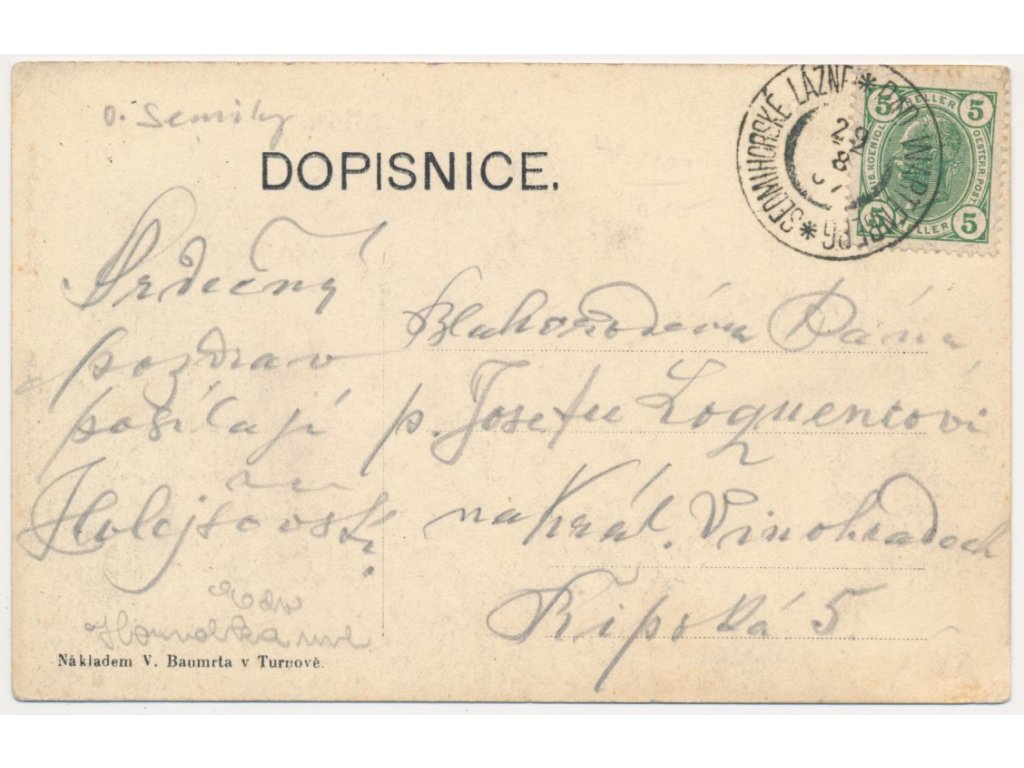 o. Semily
DOPISNICE.
SEDMIHORSKÉ LÁZNĚ * BAD WARTENBERG *
29
8
07
5 HELLER 5
KAIS. KOENIGL. OESTERR. POST.
5 HELLER 5
Srdečný
pozdrav
posílají
Holejšovští.
Blahorodému Pánu,
p. Josefu Loquencovi
na Král. Vinohradech
Řipská 5.
Nákladem V. Baumrta v Turnově.